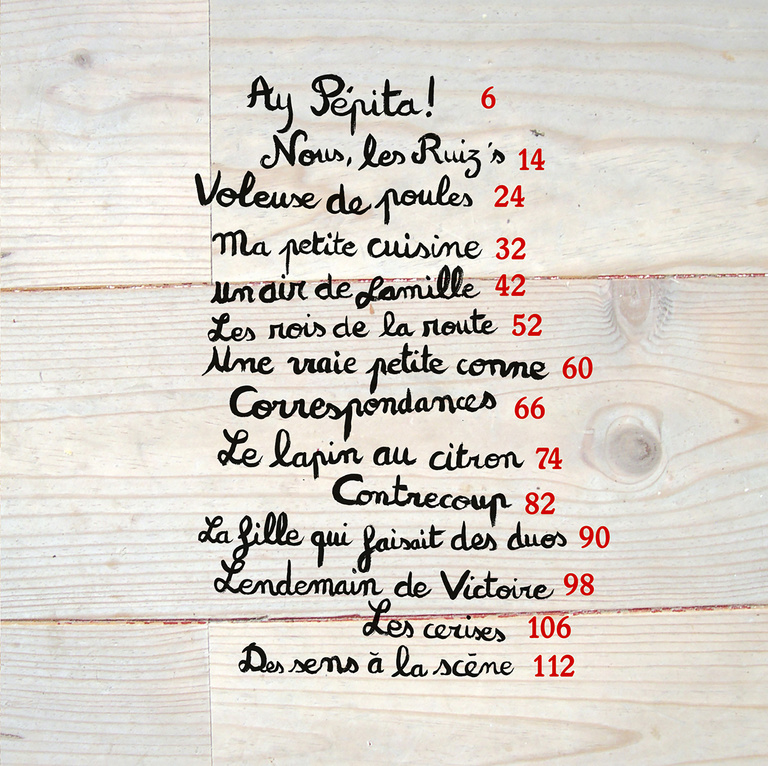 Ay Pépita! 6
Nous, les Ruiz's 14
Voleuse de poules 24
Ma petite cuisine 32
un air de famille 42
Les rois de la route 52
Une vraie petite conne 60
Correspondances 66
Le lapin au citron 74
Contrecoup 82
La fille qui faisait des duos 90
Lendemain de Victoire 98
Les cerises 106
Des sens à la scène 112